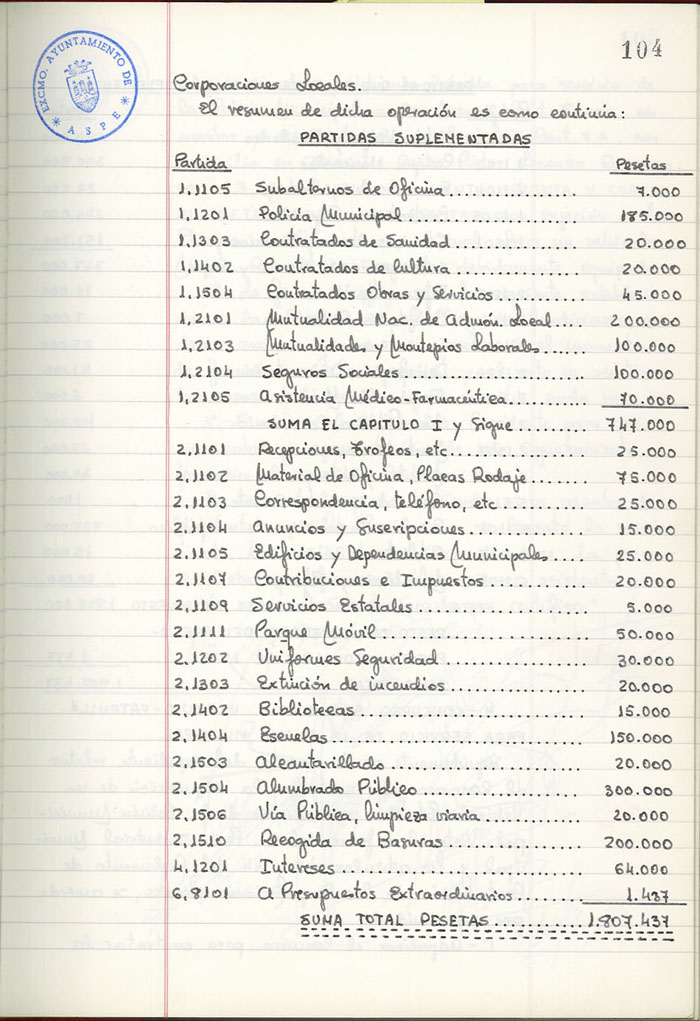 104
EXCMO. AYUNTAMIENTO DE
* ASPE *
Corporaciones Locales.
El resumen de dicha operación es como continúa:
PARTIDAS SUPLEMENTADAS
Partida Pesetas
1,1105 Subalternos de Oficina............ 7.000
1,1201 Policía Municipal............ 185.000
1,1303 Contratados de Sanidad............ 20.000
1,1402 Contratados de Cultura............ 20.000
1,1504 Contratados Obras y Servicios......... 45.000
1,2101 Mutualidad Nac. de Admón. Local.... 200.000
1,2103 Mutualidades y Montepios Laborales... 100.000
1,2104 Seguros Sociales............ 100.000
1,2105 Asistencia Médico-Farmacéutica........ 70.000
SUMA EL CAPITULO I y Sigue...... 747.000
2,1101 Recepciones, Trofeos, etc............ 25.000
2,1102 Material de Oficina, Placas Rodaje...... 75.000
2,1103 Correspondencia, teléfono, etc......... 25.000
2,1104 Anuncios y Suscripciones............ 15.000
2,1105 Edificios y Dependencias Municipales.... 25.000
2,1107 Contribuciones e Impuestos.......... 20.000
2,1109 Servicios Estatales............ 5.000
2,1111 Parque Móvil............ 50.000
2,1202 Uniformes Seguridad............ 30.000
2,1303 Extinción de incendios............ 20.000
2,1402 Bibliotecas............ 15.000
2,1404 Escuelas............ 150.000
2,1503 Alcantarillado............ 20.000
2,1504 Alumbrado Público............ 300.000
2,1506 Vía Pública, limpieza viaria.......... 20.000
2,1510 Recogida de Basuras............ 200.000
4,1201 Intereses............ 64.000
6,8101 A Presupuestos Extraordinarios....... 1.437
SUMA TOTAL PESETAS.......... 1.807.437